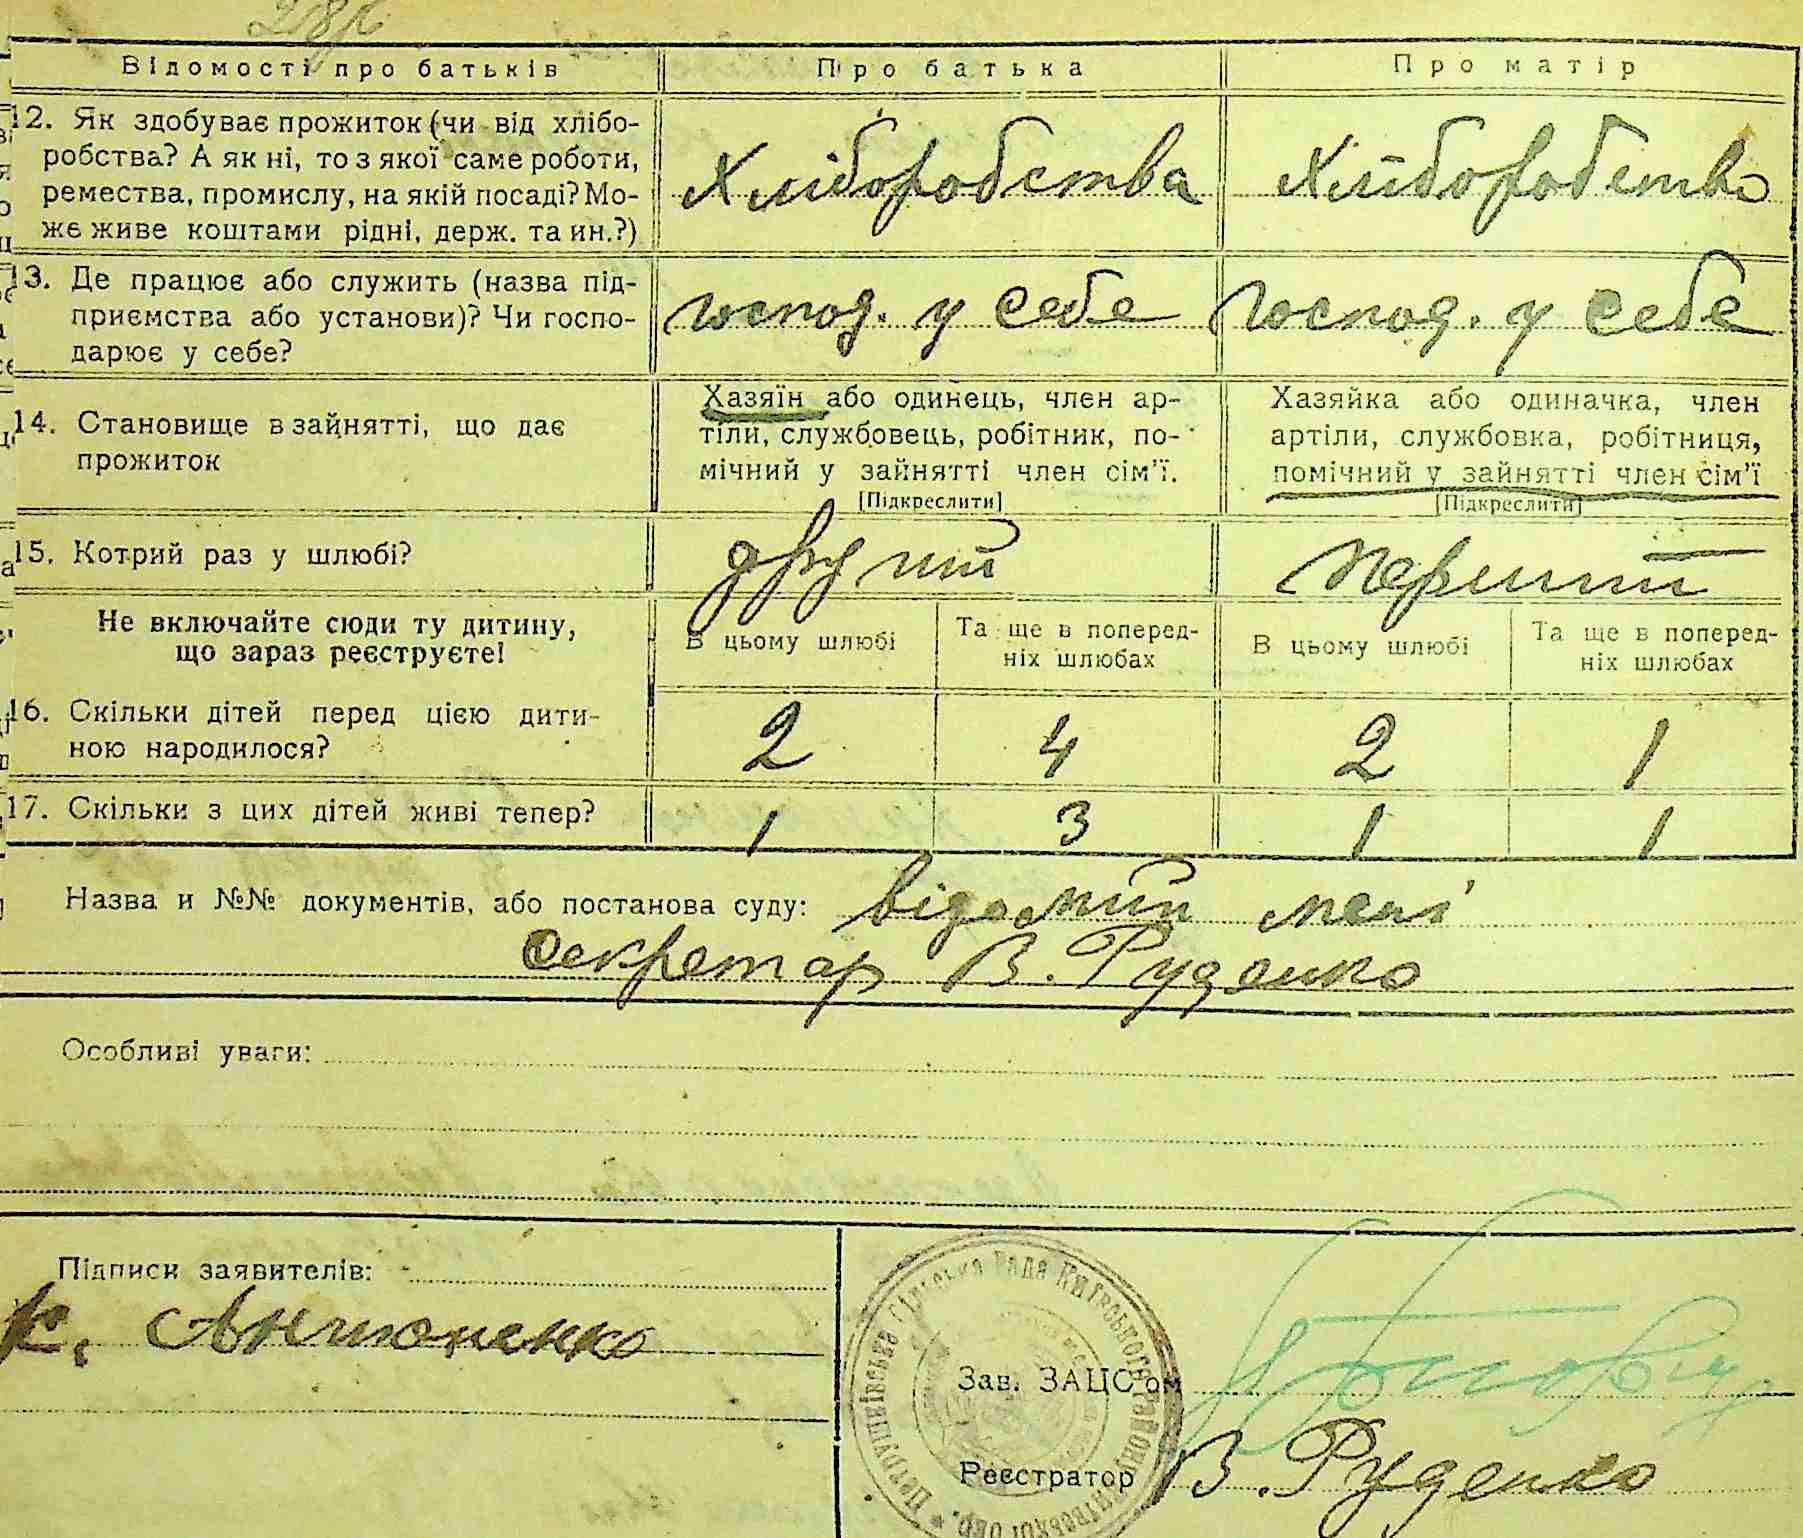 Відомості про батьків
Про батька
Про матір
12. Як здобуває прожиток (чи від хлібо-
робства? А як ні, то з якої саме роботи,
ремества, промислу, на якій посаді? Мо-
же живе коштами рідні, держ. та ин.?)
Хліборобства
Хліборобство
13. Де працює або служить (назва під-
приємства або установи)? Чи госпо-
дарює у себе?
господ. у себе
господ. у себе
14. Становище в зайнятті, що дає
прожиток
Хазяїн або одинець, член ар-
тіли, службовець, робітник, по-
мічний у зайнятті член сім'ї.
[Підкреслити]
Хазяйка або одиначка, член
артіли, службовка, робітниця,
помічний у зайнятті член сім'ї
[Підкреслити]
15. Котрий раз у шлюбі?
другий
перший
Не включайте сюди ту дитину,
що зараз реєструєте!
В цьому шлюбі
Та ще в поперед-
ніх шлюбах
В цьому шлюбі
Та ще в поперед-
ніх шлюбах
16. Скільки дітей перед цією дити-
ною народилося?
2 4 2 1
17. Скільки з цих дітей живі тепер?
1 3 1 1
Назва и №№ документів, або постанова суду: відомий мені
секретар В. Руденко
Особливі уваги:
Підписи заявителів:
К. Антоненко
Зав. ЗАЦС'ом
Реєстратор В. Руденко